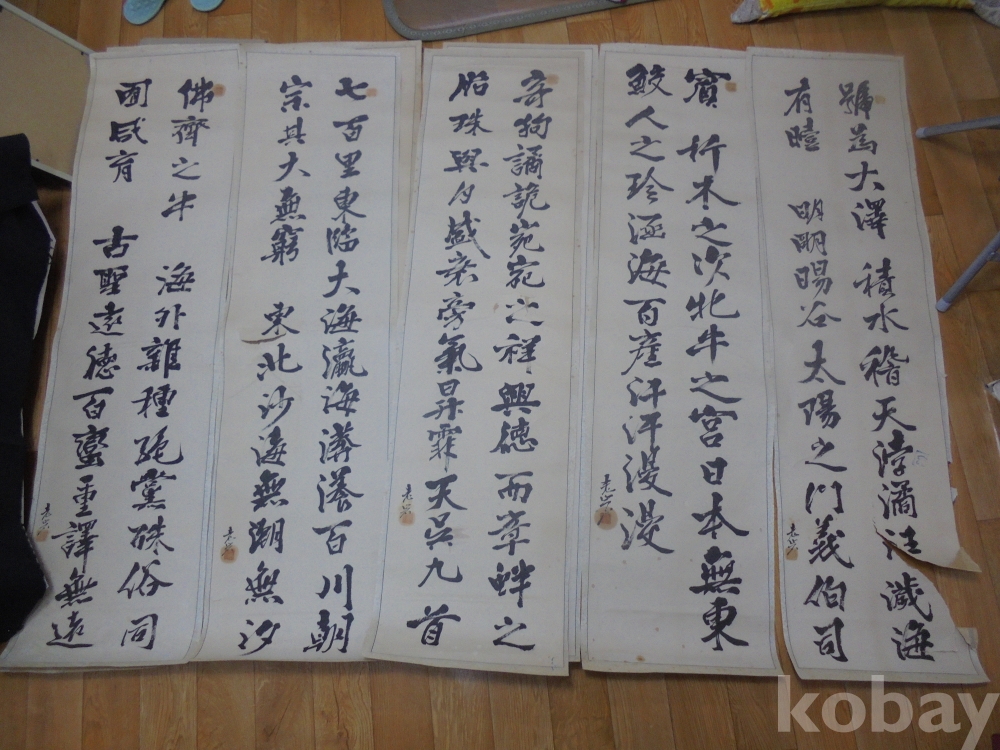 號為大澤 積水稽天浡潏汪濊海
有曀 明明暘谷太陽之門義伯司
賓 析木之次牝牛之宮日本無東
鮫人之珍涵海百産汗汗漫漫
奇物譎詭宛宛之祥興德而章蚌之
胎珠與月盛衰旁氣昇霏天吳九首
七百里東臨大海瀛海漭瀁百川朝
宗其大無窮 東北沙海無潮無汐
佛齊之牛 海外雜種絶黨殊俗同
囿咸育 古聖遠德百蠻重譯無遠
kobay